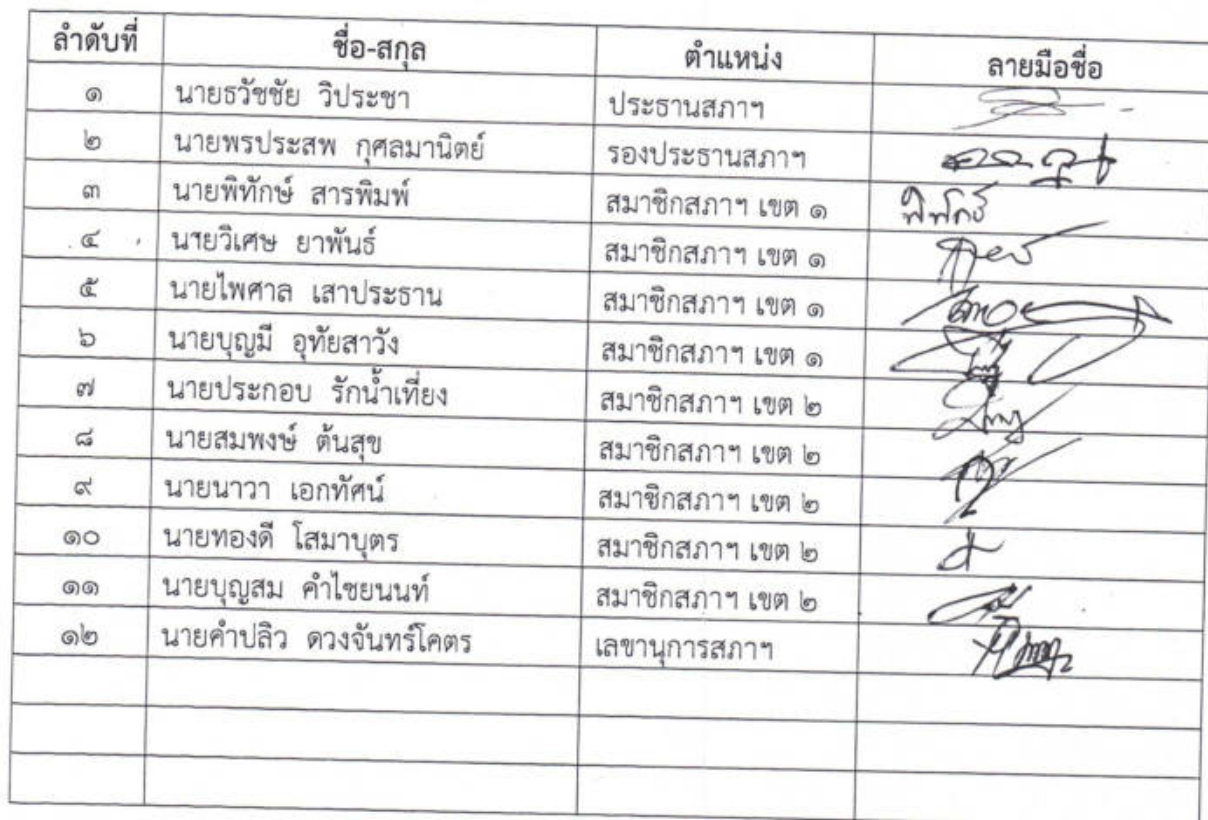 ลำดับที่ ชื่อ-สกุล ตำแหน่ง ลายมือชื่อ
๑ นายธวัชชัย วิประชา ประธานสภาฯ
๒ นายพรประสพ กุศลมานิตย์ รองประธานสภาฯ
๓ นายพิทักษ์ สารพิมพ์ สมาชิกสภาฯ เขต ๑ พิทักษ์
๔ นายวิเศษ ยาพันธ์ สมาชิกสภาฯ เขต ๑
๕ นายไพศาล เสาประธาน สมาชิกสภาฯ เขต ๑
๖ นายบุญมี อุทัยสาวัง สมาชิกสภาฯ เขต ๑
๗ นายประกอบ รักน้ำเที่ยง สมาชิกสภาฯ เขต ๒
๘ นายสมพงษ์ ต้นสุข สมาชิกสภาฯ เขต ๒
๙ นายนาวา เอกทัศน์ สมาชิกสภาฯ เขต ๒
๑๐ นายทองดี โสมาบุตร สมาชิกสภาฯ เขต ๒
๑๑ นายบุญสม คำไชยนนท์ สมาชิกสภาฯ เขต ๒
๑๒ นายคำปลิว ดวงจันทร์โคตร เลขานุการสภาฯ